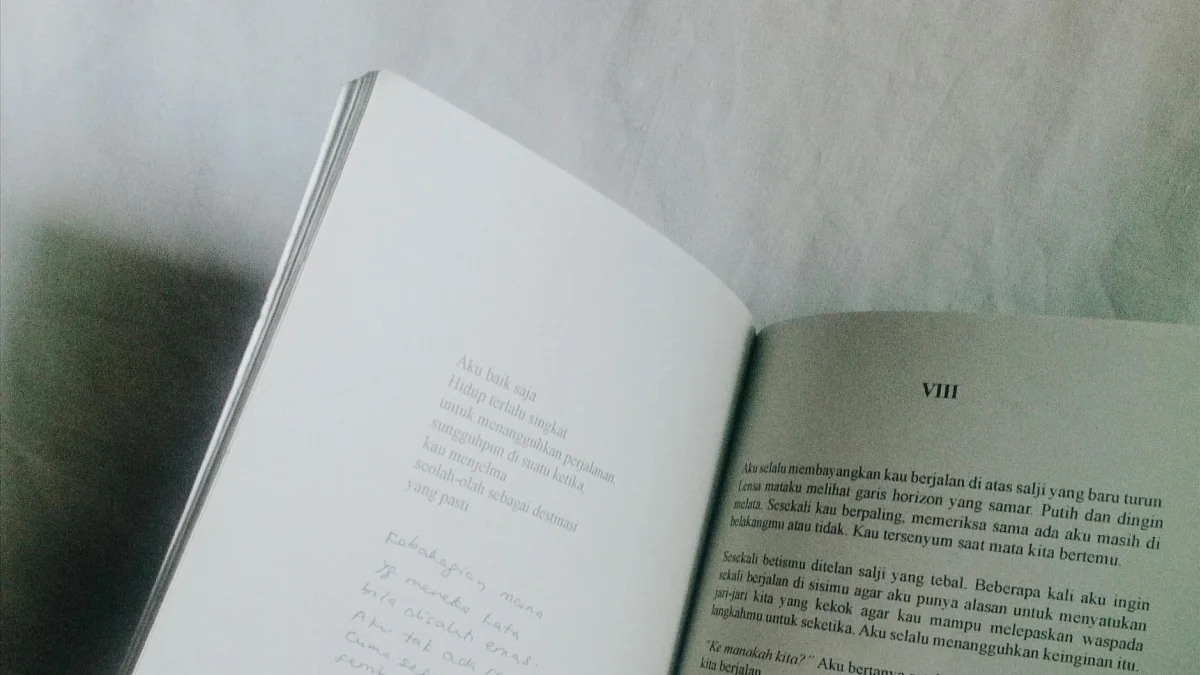 Aku baik saja
Hidup terlalu singkat
untuk menangguhkan perjalanan,
sungguhpun di suatu ketika,
kau menjelma
seolah-olah sebagai destinasi
yang pasti
Kebahagian mana
yg mereka kata
bila disaluti emas.
Aku tak ada
Cuma
VIII
Aku selalu membayangkan kau berjalan di atas salji yang baru turun
Lensa mataku melihat garis horizon yang samar. Putih dan dingin
melata. Sesekali kau berpaling, memeriksa sama ada aku masih di
belakangmu atau tidak. Kau tersenyum saat mata kita bertemu.
Sesekali betismu ditelan salji yang tebal. Beberapa kali aku ingin
sekali berjalan di sisimu agar aku punya alasan untuk menyatukan
jari-jari kita yang kekok agar kau mampu melepaskan waspada
langkahmu untuk seketika. Aku selalu menangguhkan keinginan itu.
"Ke manakah kita?" Aku bertanya
kita berjalan